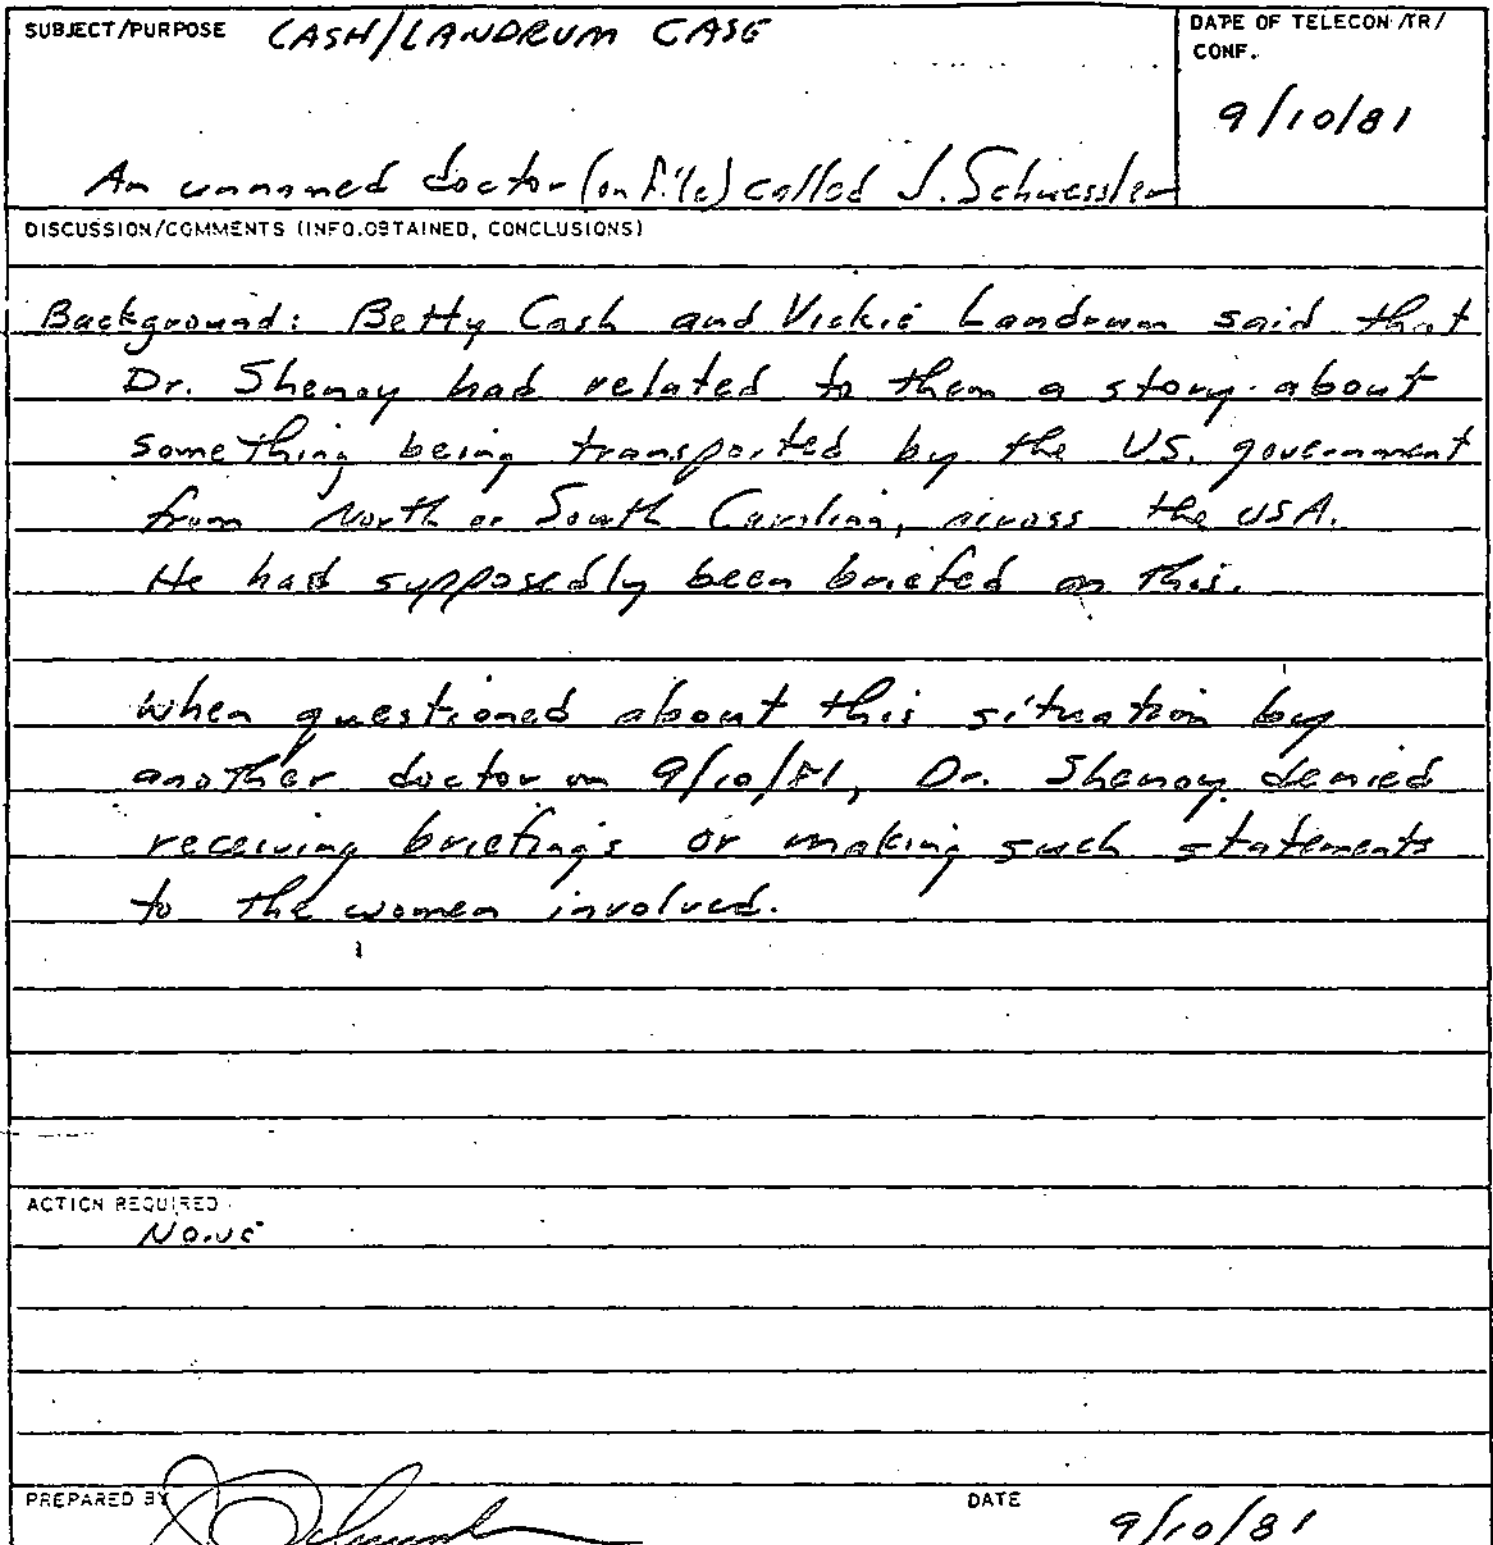 SUBJECT/PURPOSE CASH/LANDRUM CASE
DATE OF TELECON/TR/
CONF.
9/10/81
An unnamed doctor (on file) called J. Schuessler
DISCUSSION/COMMENTS (INFO.OBTAINED, CONCLUSIONS)
Background: Betty Cash and Vickie Landrum said that
Dr. Shenoy had related to them a story about
something being transported by the US. government
from North or South Carolina, across the USA.
He had supposedly been briefed on this.
When questioned about this situation by
another doctor on 9/10/81, Dr. Shenoy denied
receiving briefings or making such statements
to the women involved.
ACTION REQUIRED
NONE
PREPARED BY J Schuessler
DATE 9/10/81